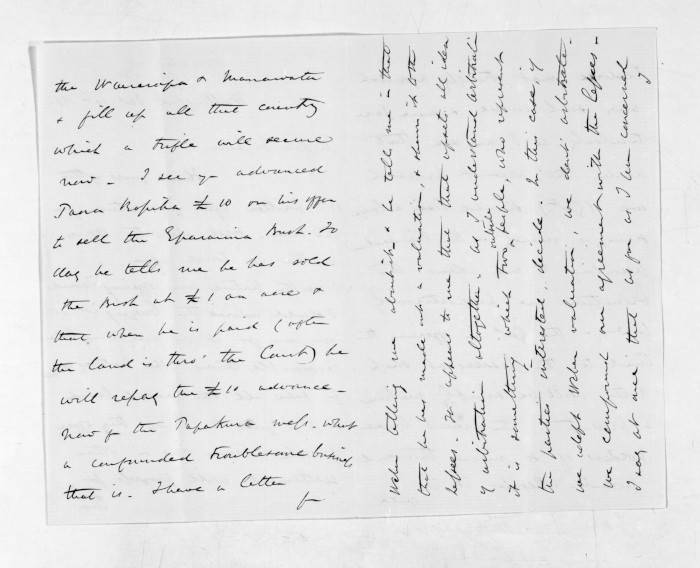 the Wairarapa & Manawatu
& fill up all that country
which a trifle will secure
now - I see you advanced
Paora Ropiha £10 on his offer
to sell the Eparaima Bush. To
day he tells me he has sold
the Bush at £1 an acre &
that when he is paid (after
the land is thro' the Court) he
will repay the £10 advance -
Now for the Papakura mess. what
a confounded troublesome business
that is. I have a letter
f
Weber telling me about it & he tells me in that
that he has made out a valuation, & shewn it to the
lessees. It appears to me that that upsets all idea
of arbitration altogether - as I understand arbitrati
it is something which two outside people, who represent
the parties interested, decide. In this case if
we adopt Weber valuation, we don't arbitrate -
we compound our agreement with the lessees -
I say at once that as far as I am concerned
I